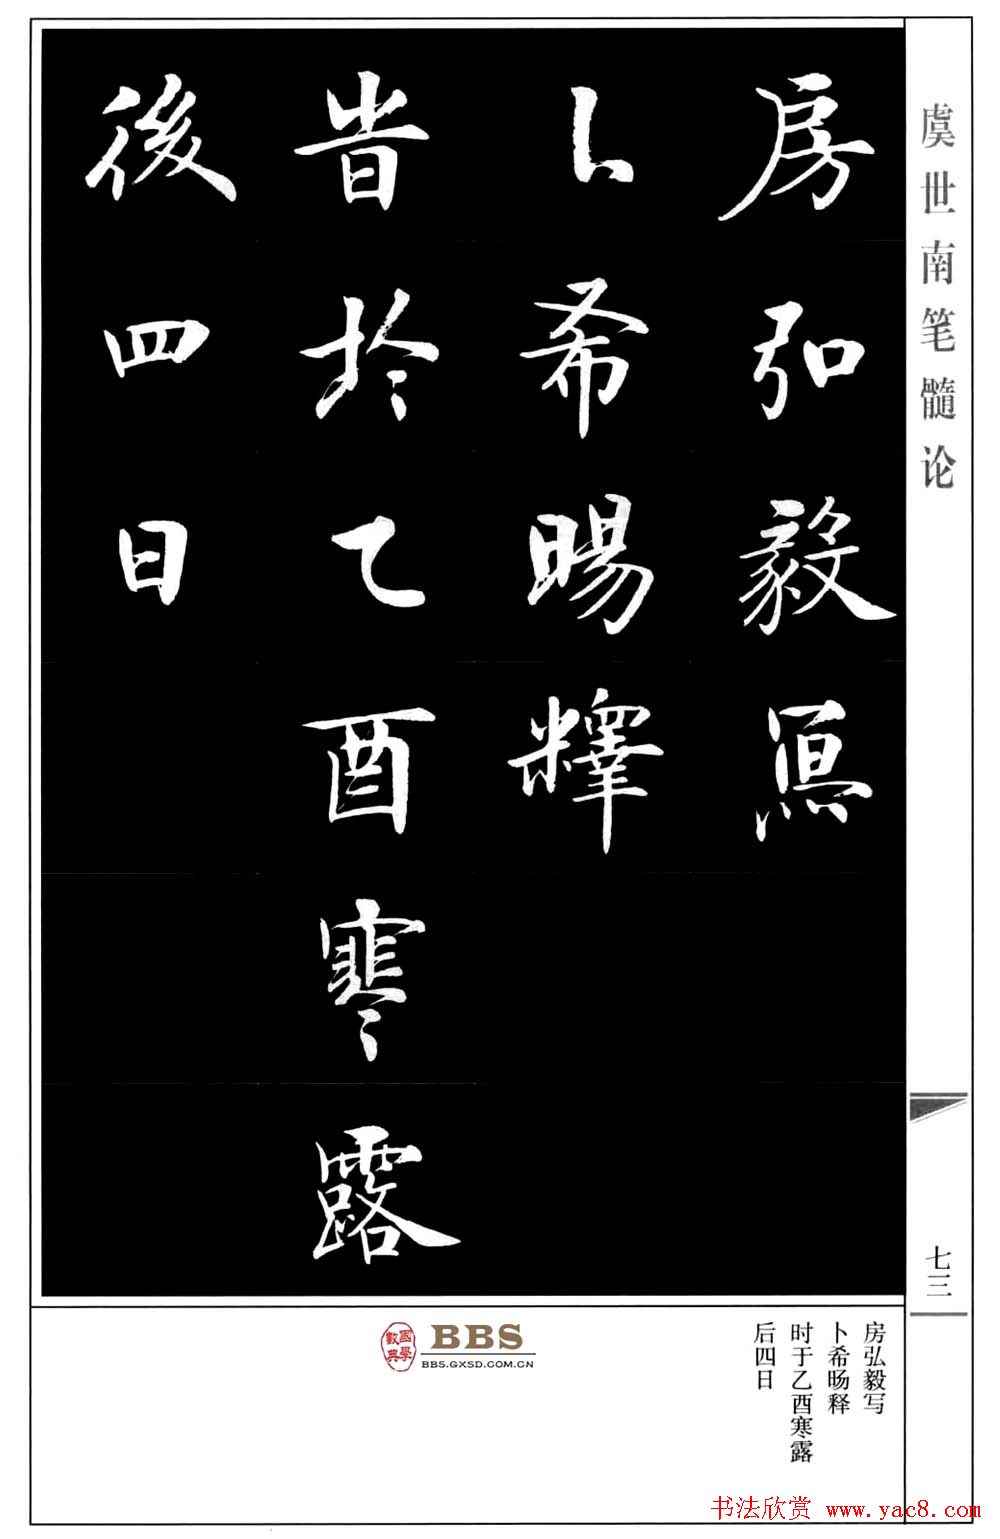 虞世南笔髓论
房弘毅寫
卜希暘釋
旹於乙酉寒露
後四日
七三
房弘毅写
卜希旸释
时于乙酉寒露
后四日
國學數典
BBS
BBS.GXSD.COM.CN
书法欣赏 www.yac8.com